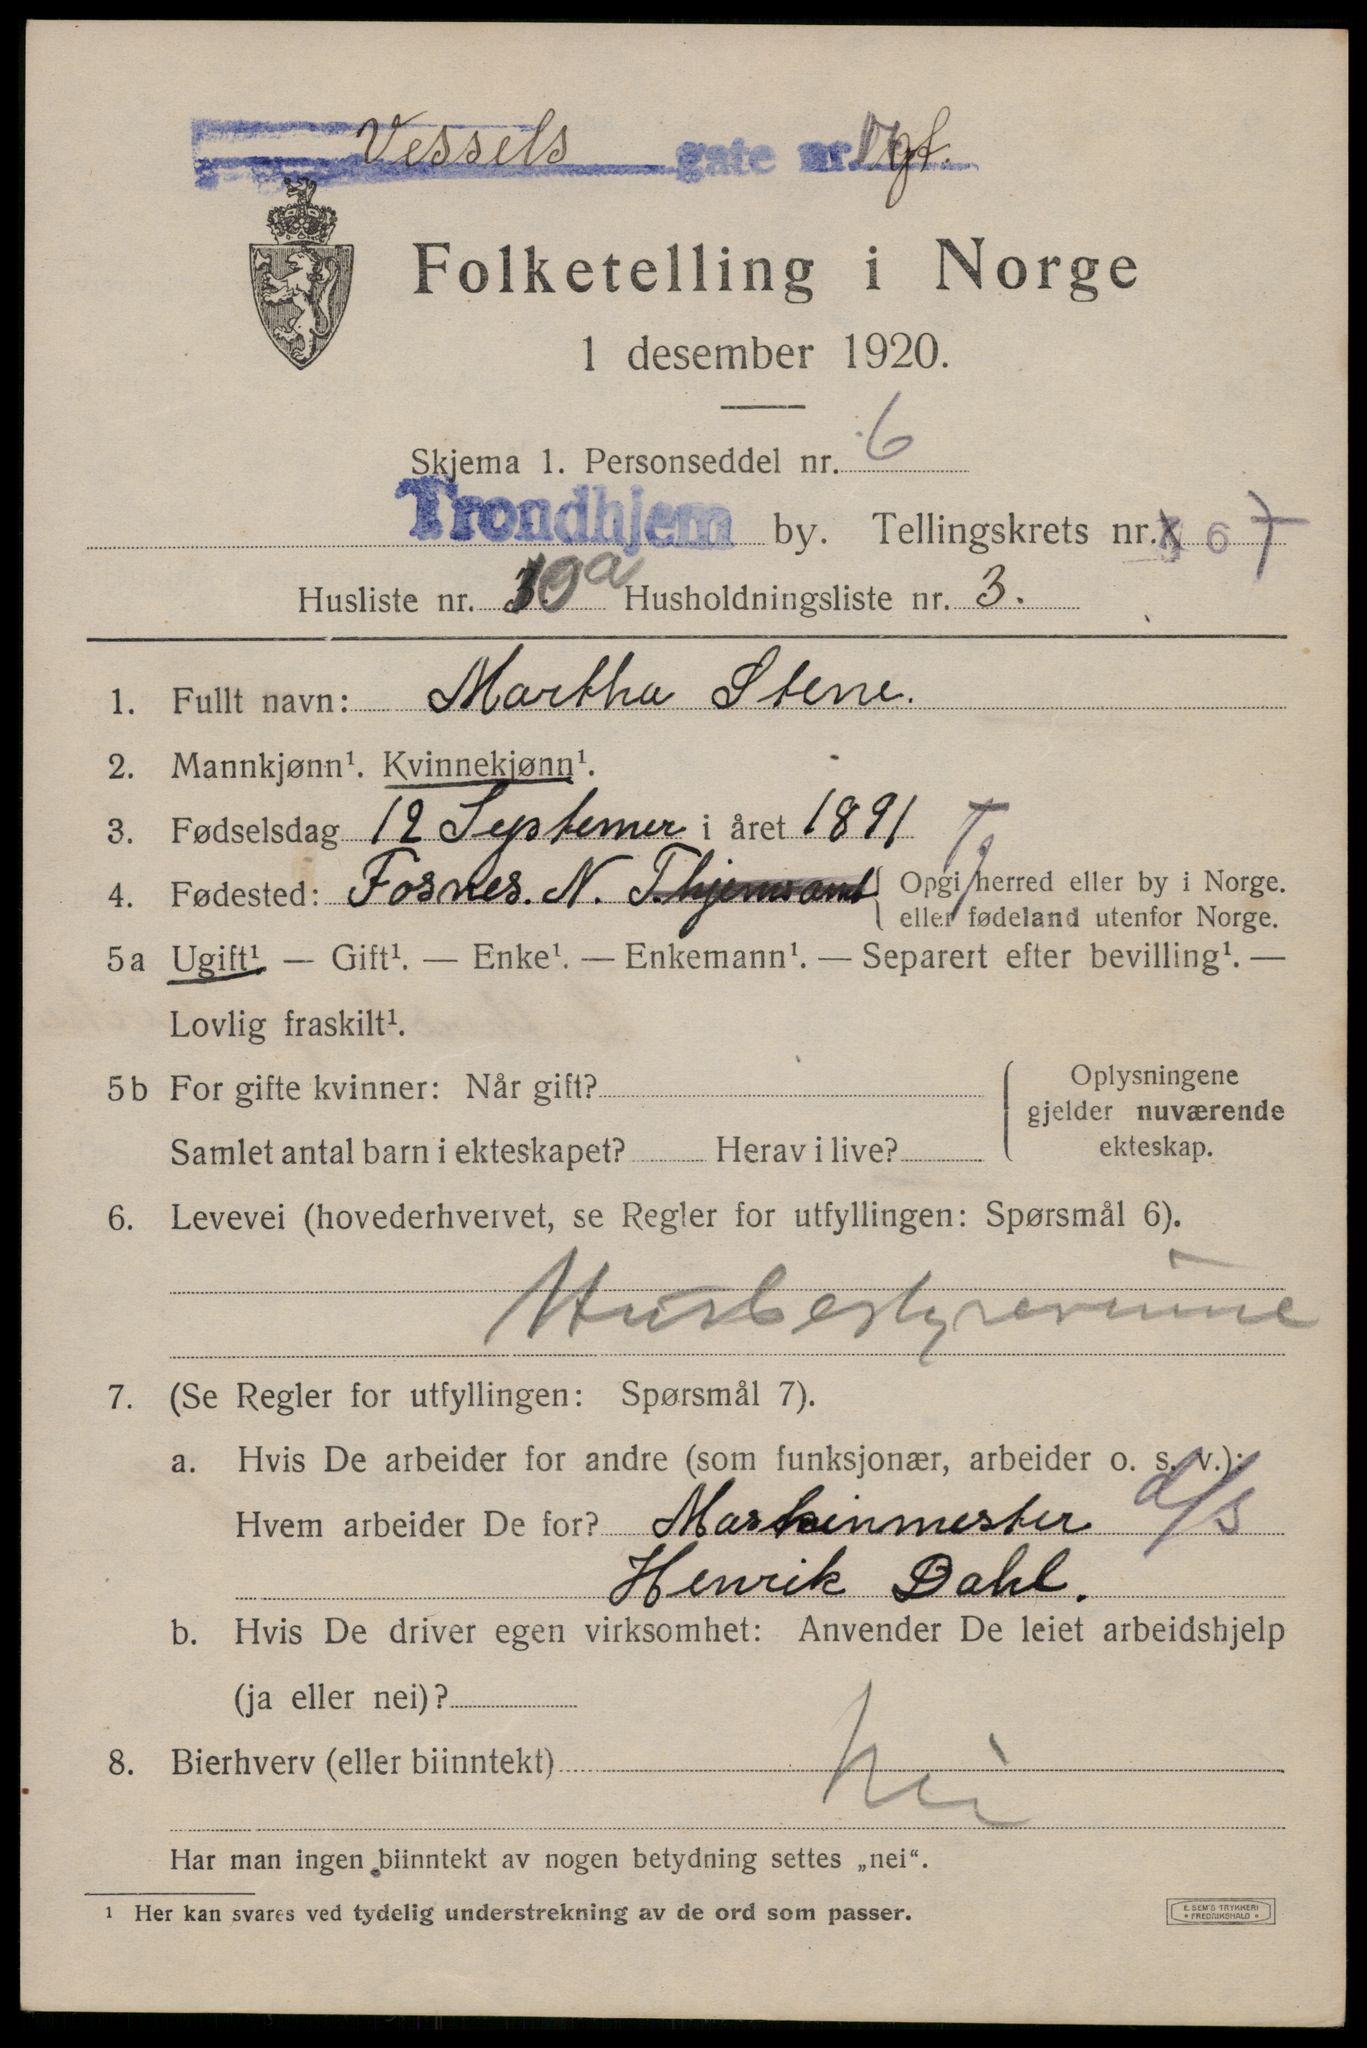 Vessels gate nr. gf.
Folketelling i Norge
1 desember 1920.
Skjema 1. Personseddel nr. 6
Trondhjem by. Tellingskrets nr. 67
Husliste nr. 10a Husholdningsliste nr. 3.
1. Fullt navn: Martha Stene.
2. Mannkjønn¹. Kvinnekjønn¹.
3. Fødselsdag 12 Systemer i året 1891
4. Fødested: Fosnes. N. T.hjems amt { Opgi herred eller by i Norge.
eller fødeland utenfor Norge.
5a Ugift¹. — Gift¹. — Enke¹. — Enkemann¹. — Separert efter bevilling¹. —
Lovlig fraskilt¹.
5b For gifte kvinner: Når gift? Oplysningene
gjelder nuværende
Samlet antal barn i ekteskapet? Herav i live? ekteskap.
6. Levevei (hovederhvervet, se Regler for utfyllingen: Spørsmål 6).
Husbestyrerinne
7. (Se Regler for utfyllingen: Spørsmål 7).
a. Hvis De arbeider for andre (som funksjonær, arbeider o. s. v.):
Hvem arbeider De for? Maskinmester d/s
Henrik Dahl.
b. Hvis De driver egen virksomhet: Anvender De leiet arbeidshjelp
(ja eller nei)?
8. Bierhverv (eller biinntekt) Nei
Har man ingen biinntekt av nogen betydning settes „nei“.
¹ Her kan svares ved tydelig understrekning av de ord som passer.
E. SEM'S TRYKKERI
• FREDRIKSHALD •